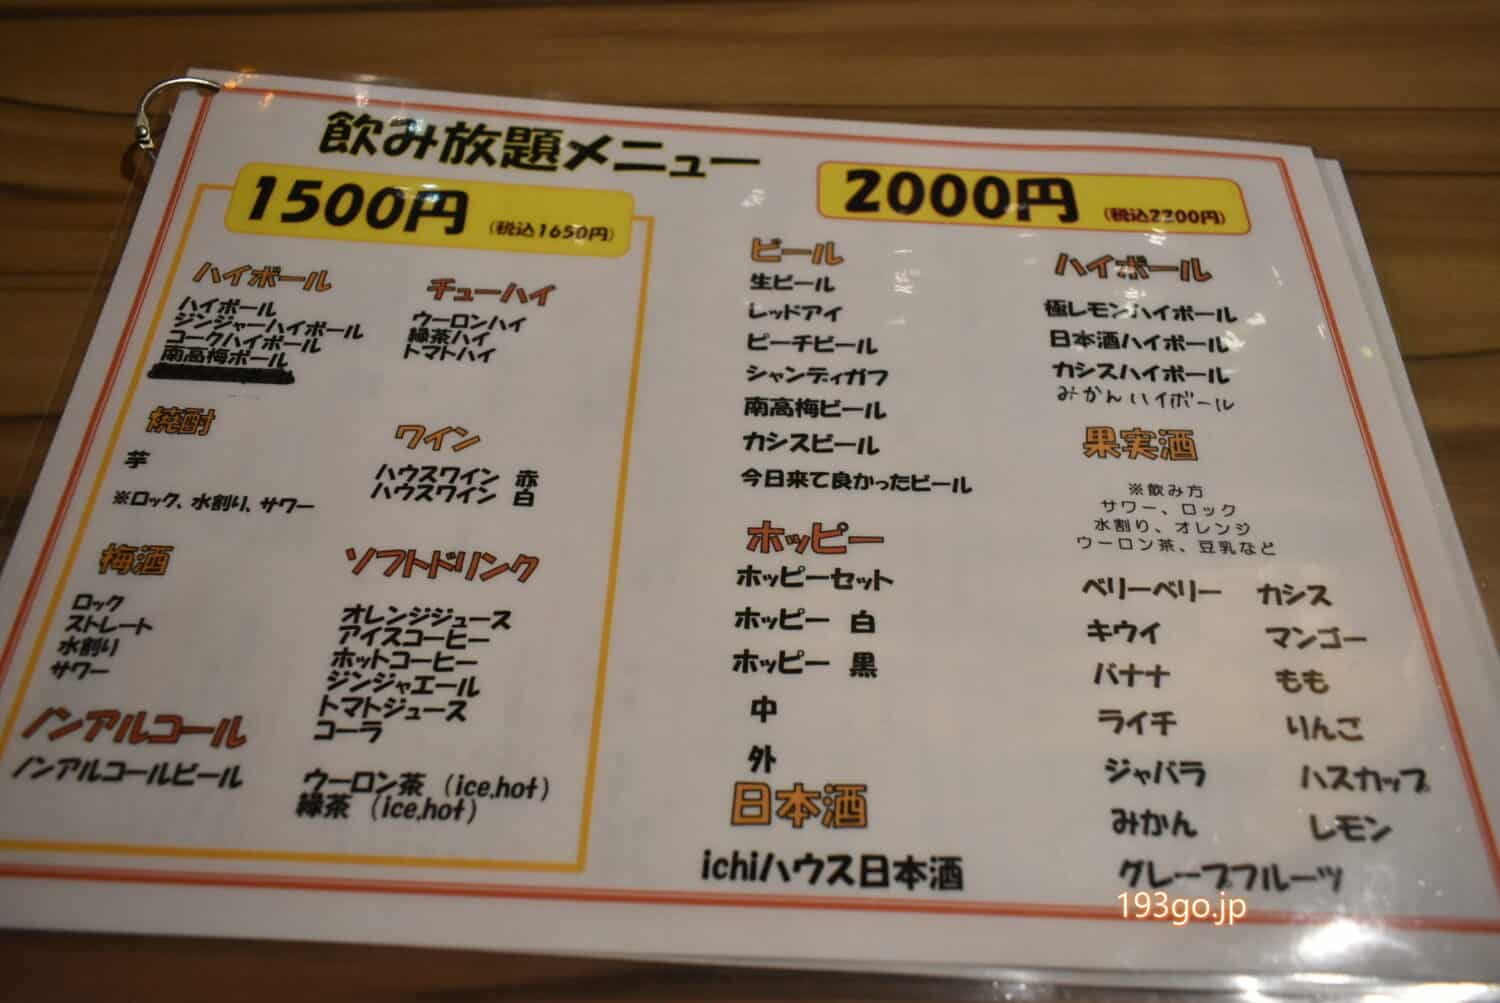 飲み放題メニュー
1500円 (税込1650円)
ハイボール
ハイボール
ジンジャーハイボール
コークハイボール
南高梅ボール
チューハイ
ウーロンハイ
緑茶ハイ
トマトハイ
焼酎
芋
※ロック、水割り、サワー
ワイン
ハウスワイン 赤
ハウスワイン 白
梅酒
ロック
ストレート
水割り
サワー
ソフトドリンク
オレンジジュース
アイスコーヒー
ホットコーヒー
ジンジャエール
トマトジュース
コーラ
ウーロン茶 (ice.hot)
緑茶 (ice.hot)
ノンアルコール
ノンアルコールビール
2000円 (税込2200円)
ビール
生ビール
レッドアイ
ピーチビール
シャンディガフ
南高梅ビール
カシスビール
今日来て良かったビール
ホッピー
ホッピーセット
ホッピー 白
ホッピー 黒
中
外
日本酒
ichiハウス日本酒
ハイボール
極レモンハイボール
日本酒ハイボール
カシスハイボール
みかんハイボール
果実酒
※飲み方
サワー、ロック
水割り、オレンジ
ウーロン茶、豆乳など
ベリーベリー カシス
キウイ マンゴー
バナナ もも
ライチ りんご
ジャバラ ハスカップ
みかん レモン
グレープフルーツ
193go.jp